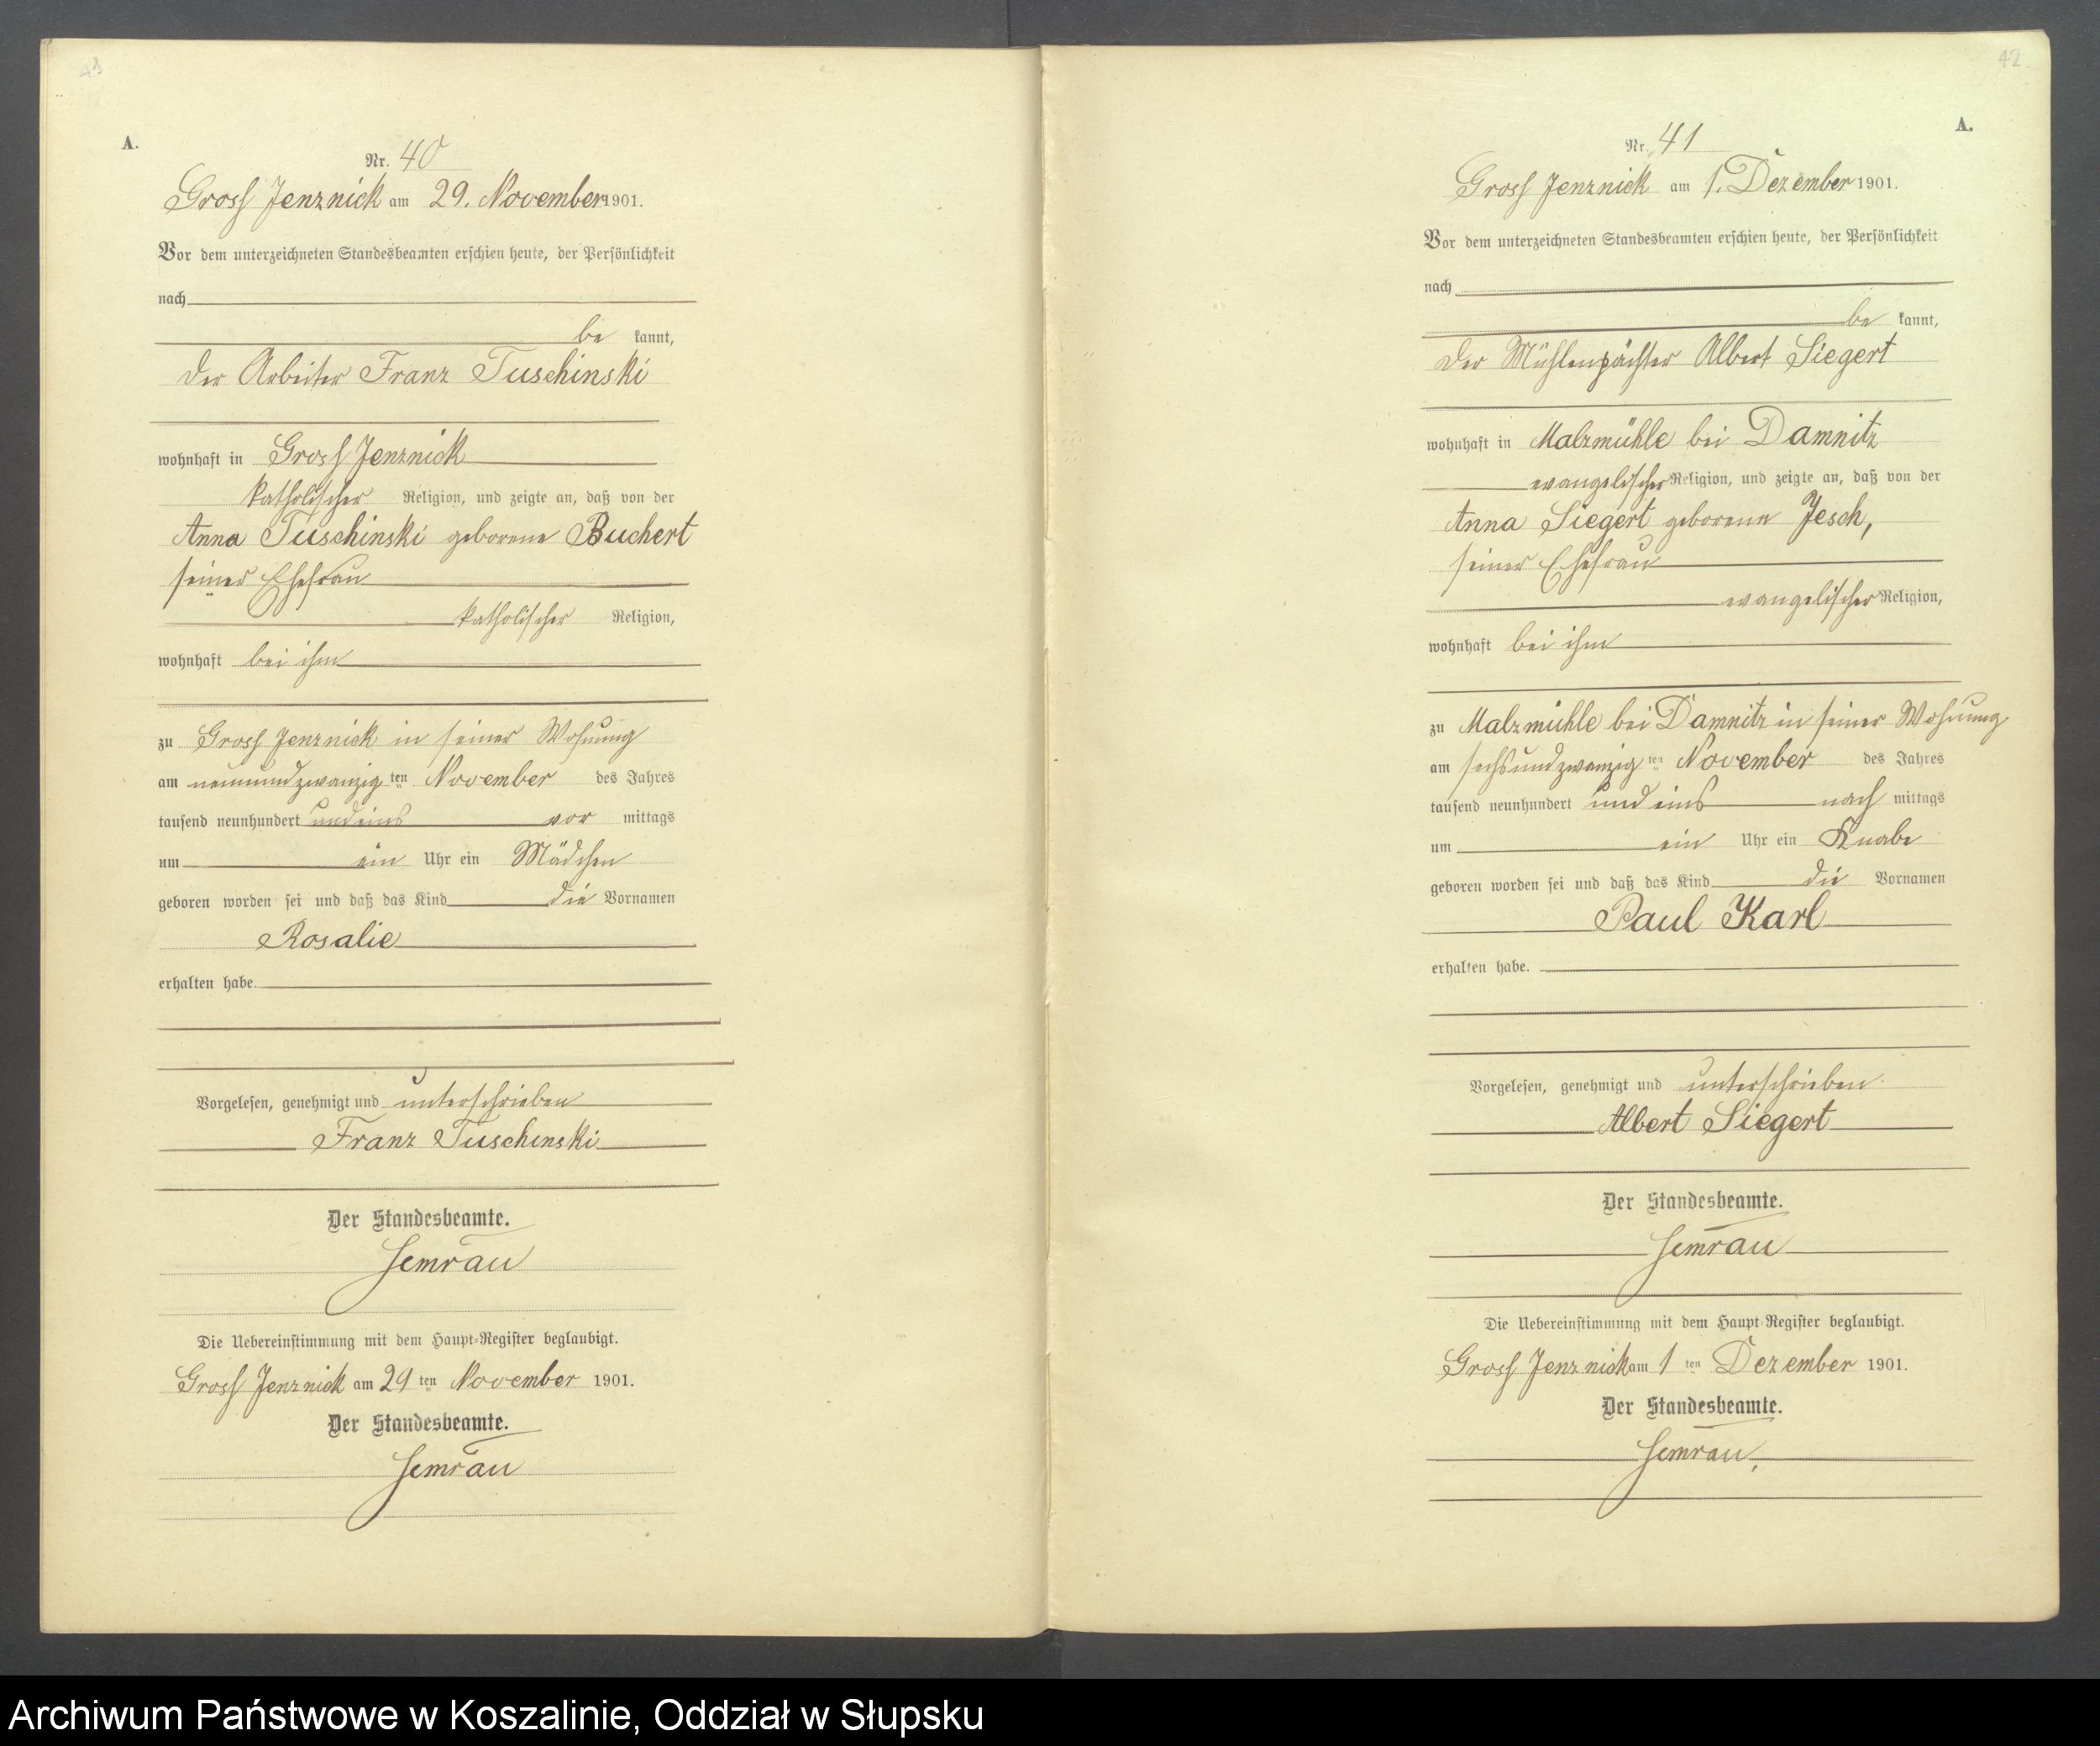 41
A.
Nr. 40
Gross Jenznick am 29. November 1901.
Vor dem unterzeichneten Standesbeamten erschien heute, der Persönlichkeit
nach
be kannt,
der Arbeiter Franz Tuschinski
wohnhaft in Gross Jenznick
katholischer Religion, und zeigte an, daß von der
Anna Tuschinski geborene Buchert
seiner Ehefrau
katholischer Religion,
wohnhaft bei ihm
zu Gross Jenznick in seiner Wohnung
am neunundzwanzig ten November des Jahres
tausend neunhundert und eins vor mittags
um ein Uhr ein Mädchen
geboren worden sei und daß das Kind die Vornamen
Rosalie
erhalten habe.
Vorgelesen, genehmigt und unterschrieben
Franz Tuschinski
Der Standesbeamte.
Semrau
Die Uebereinstimmung mit dem Haupt-Register beglaubigt.
Gross Jenznick am 29 ten November 1901.
Der Standesbeamte.
Semrau
42
A.
Nr. 41
Gross Jenznick am 1. Dezember 1901.
Vor dem unterzeichneten Standesbeamten erschien heute, der Persönlichkeit
nach
be kannt,
der Mühlenpächter Albert Siegert
wohnhaft in Malzmühle bei Damnitz
evangelischer Religion, und zeigte an, daß von der
Anna Siegert geborene Jesch,
seiner Ehefrau
evangelischer Religion,
wohnhaft bei ihm
zu Malzmühle bei Damnitz in seiner Wohnung
am sechsundzwanzig ten November des Jahres
tausend neunhundert und eins nach mittags
um ein Uhr ein Knabe
geboren worden sei und daß das Kind die Vornamen
Paul Karl
erhalten habe.
Vorgelesen, genehmigt und unterschrieben
Albert Siegert
Der Standesbeamte.
Semrau
Die Uebereinstimmung mit dem Haupt-Register beglaubigt.
Gross Jenznick am 1 ten Dezember 1901.
Der Standesbeamte.
Semrau.
Archiwum Państwowe w Koszalinie, Oddział w Słupsku